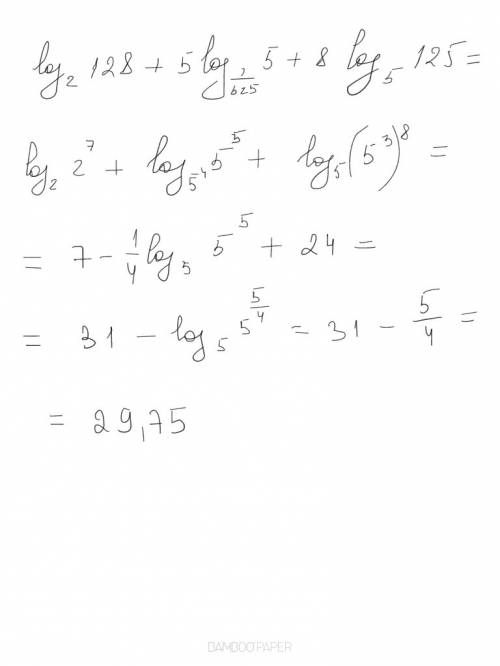 log₂ 128 + 5 log_{1/625} 5 + 8 log₅ 125 =
log₂ 2⁷ + log_{5⁻⁴} 5⁵ + log₅ (5³)⁸ =
= 7 - 1/4 log₅ 5⁵ + 24 =
= 31 - log₅ 5^{5/4} = 31 - 5/4 =
= 29,75
BAMBOOPAPER